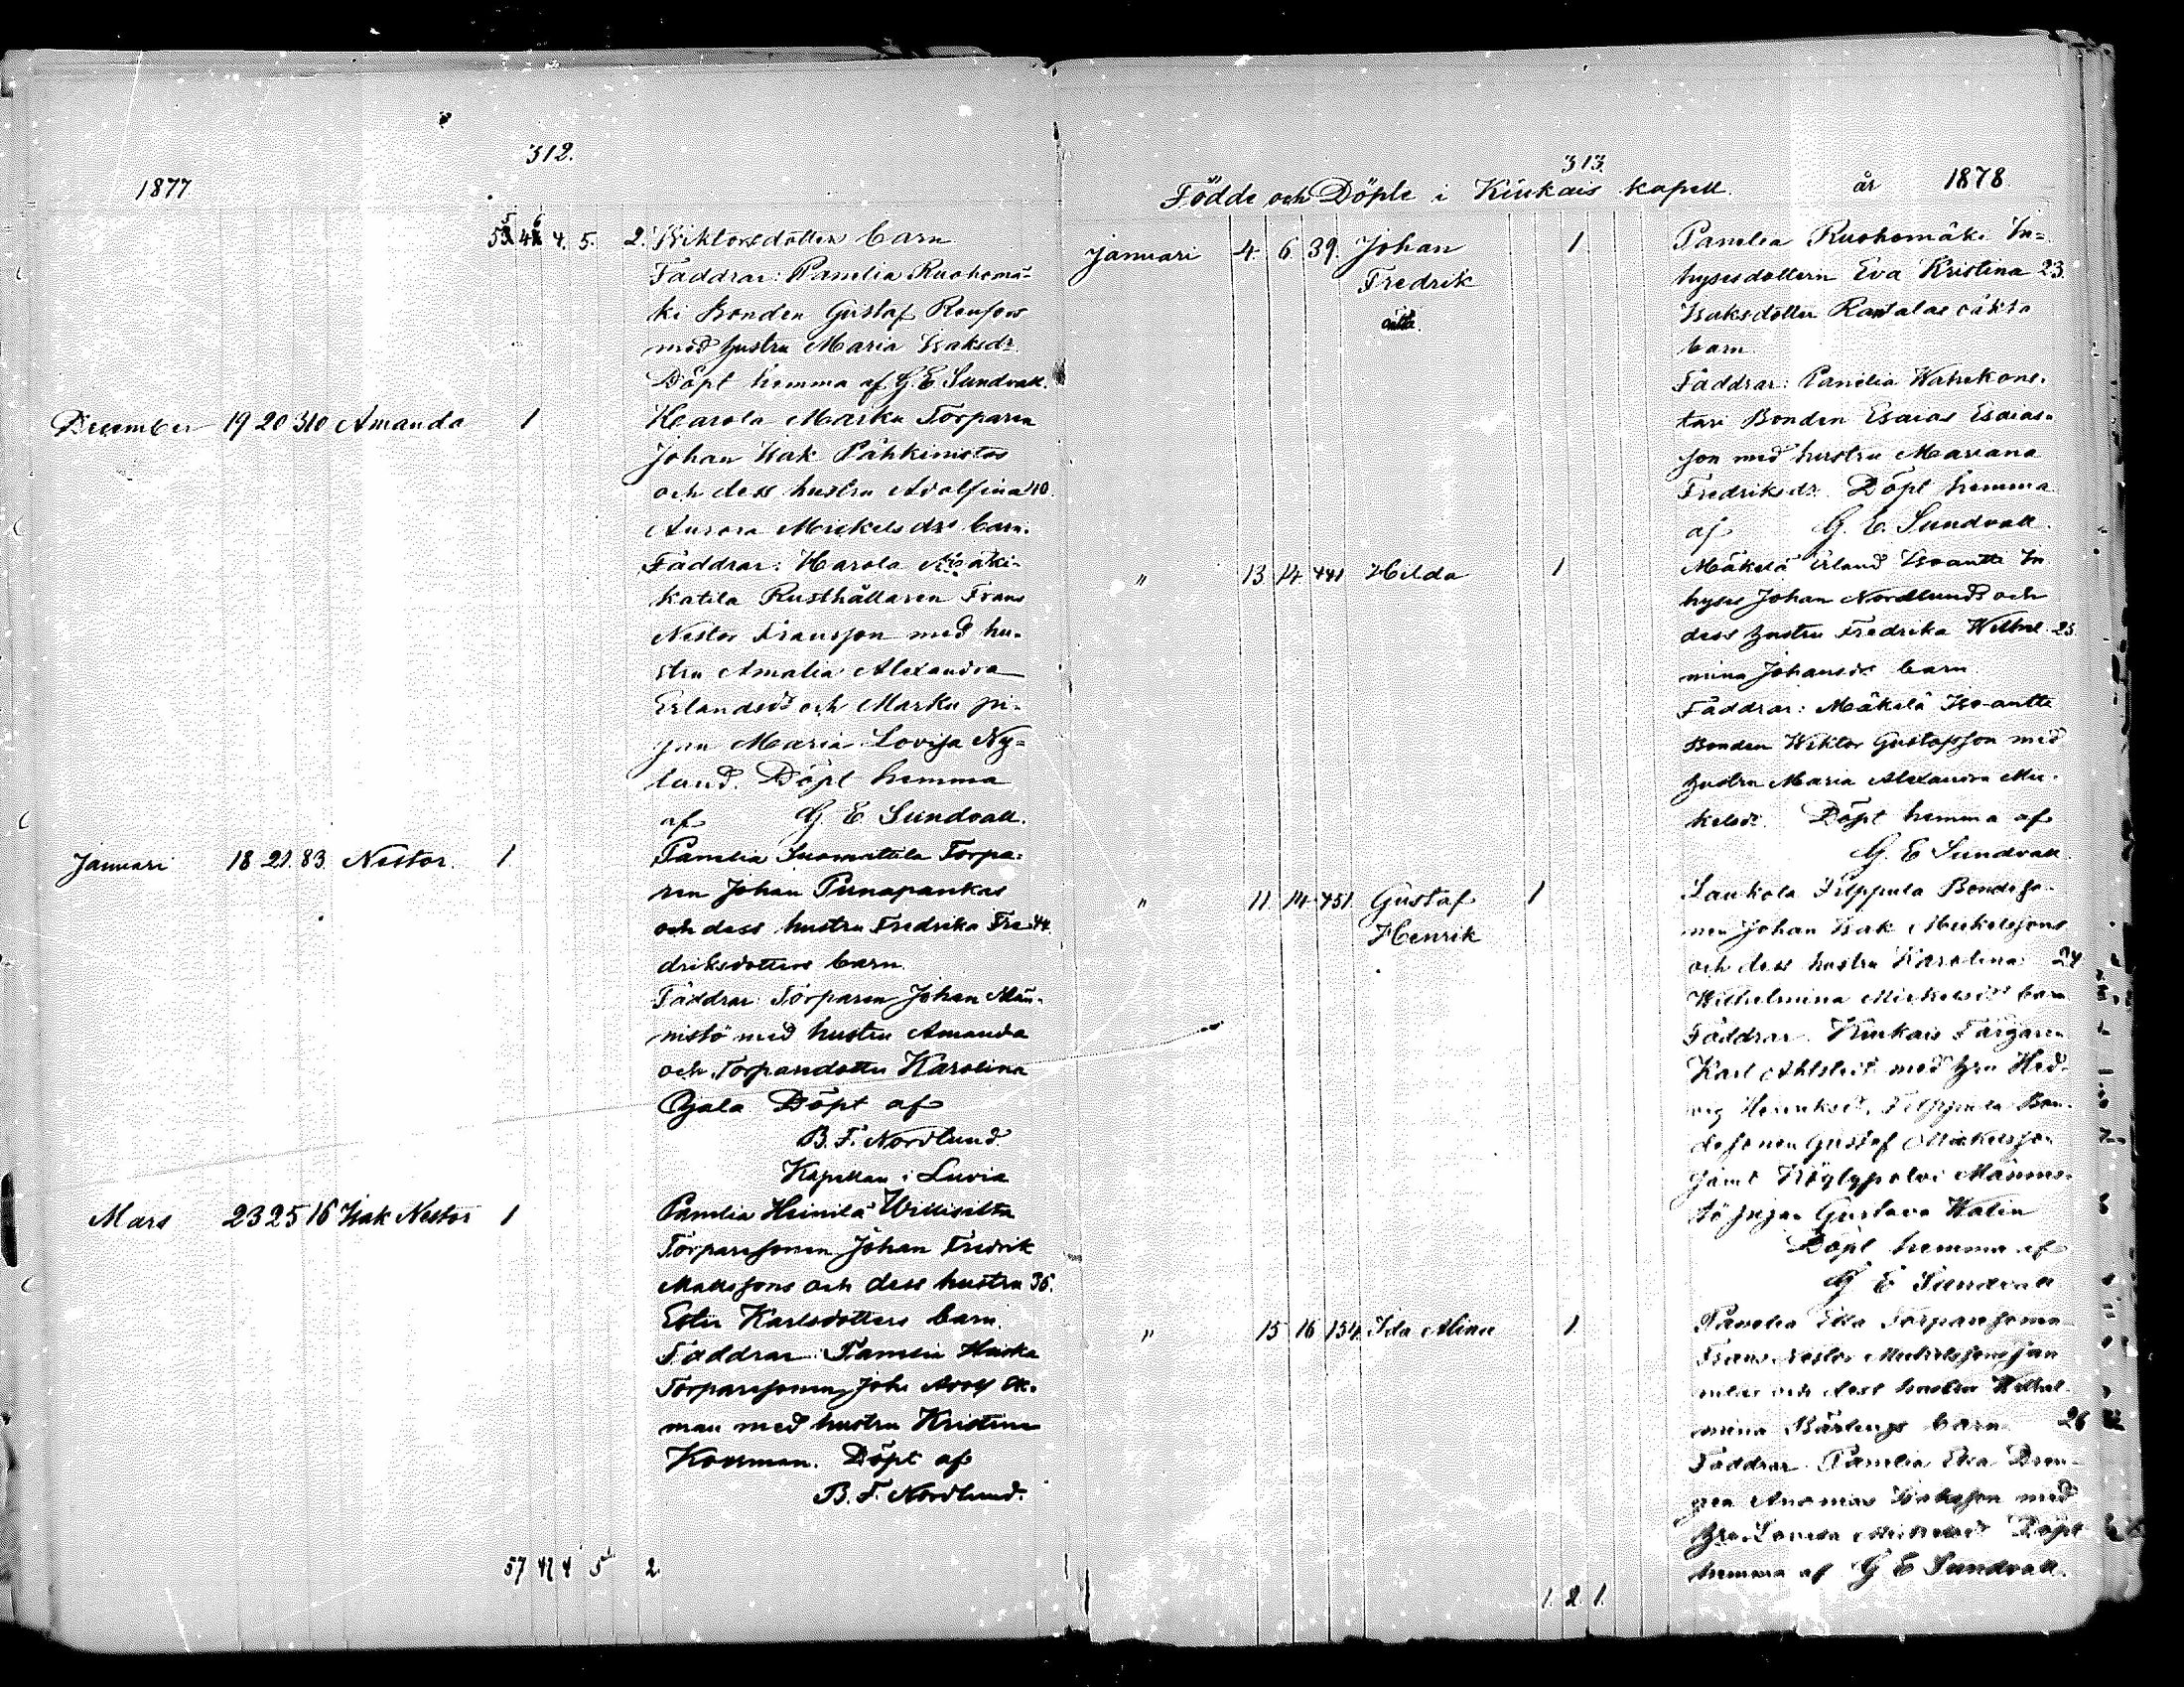 312.
1877
5 6
53 48 4. 5. 2. Wiktorsdotters barn
Faddrar: Panelia Ruohomä-
ki Bonden Gustaf
med hustru Maria Isaksdr.
Döpt hemma af G. E. Sundvall.
December 19 20 310 Amanda 1 Harola Marku Torparen
Johan Isak Pähkimistos
och dess hustru Adolfina 40.
Aurora Mickelsdrs barn.
Faddrar: Harola Mäki-
katila Rusthållaren Frans
Nestor Fransson med hu-
stru Amalia Alexandra
Erlandsdr och Marku pi-
gan Maria Lovisa Ny-
lund. Döpt hemma
af G. E. Sundvall.
Januari 18 21. 83. Nestor. 1 Panelia Torpa-
ren Johan Punapankas
och dess hustru Fredrika Fre- 44.
driksdotters barn.
Faddrar: Torparen Johan Män-
nistö med hustru Amanda
och Torparedotter Karolina
Ojala Döpt af
B. F. Nordlund
Kapellan i Luvia
Mars 23 25 16 Isak Nestor 1 Panelia Heinilä
Torparesonen Johan Fredrik
Mattssons och dess hustru 36.
Ester Karlsdotters barn.
Faddrar: Panelia
Torparesonen Joh. Adolf Ek-
man med hustru Kristina
Koosman. Döpt af
B. F. Nordlund.
57 47 4 5 2.
313.
Födde och Döpte i Kiukais kapell. år 1878.
Januari 4. 6. 39. Johan 1 Panelia Ruohomäki In-
Fredrik hysesdottern Eva Kristina 23.
oäkta. Isaksdotter Rantalas oäkta
barn.
Faddrar: Panelia
Bonden Esaias Esaias-
son med hustru Mariana
Fredriksdr. Döpt hemma
af G. E. Sundvall.
" 13 14. 441 Hilda 1 Mäkelä Erland Iso-antti In-
hyses Johan Nordlunds och
dess hustru Fredrika Wilhel- 25.
mina Johansdr barn.
Faddrar: Mäkelä Iso-antti
Bonden Wiktor Gustafsson med
hustru Maria Alexandra Mic-
kelsdr. Döpt hemma af
G. E Sundvall.
" 11 14 451. Gustaf 1 Laukola Filppula Bondeso-
Henrik nen Johan Isak Mickelssons
och dess hustru Karolina 24
Wilhelmina Mickelsdrs barn
Faddrar. Kiukais Färgaren
Karl med hru Hed-
vig Henriksdr, Filppula Bon-
desonen Gustaf Mickelsson
jämt Männis-
tö pigan Gustava Walin
Döpt hemma af
G E Sundvall
" 15 16 154. Ida Alina 1. Panelia Torparesonen
Frans Nestor Mickelssons
och dess hustru Wilhel-
mina barn 26
Faddrar. Panelia Dren-
gen Isaksson med
hru Lovisa Döpt
hemma af G E Sundvall.
1. 2. 1.